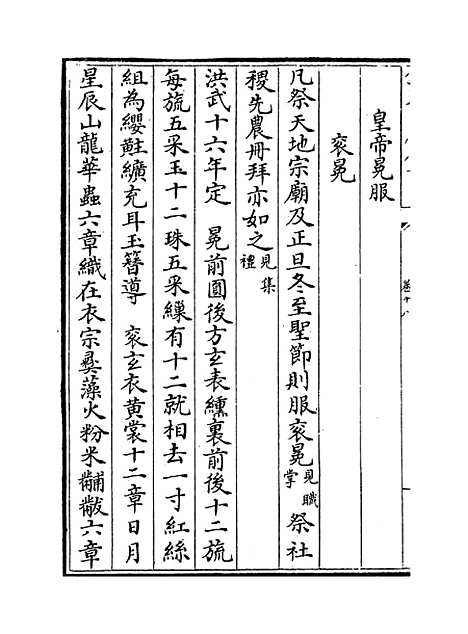 皇帝冕服
衮冕
凡祭天地宗廟及正旦冬至聖節則服衮冕見職掌祭社
稷先農冊拜亦如之見集禮
洪武十六年定　冕前圓後方玄表纁裏前後十二旒
每旒五采玉十二珠五采繅有十二就相去一寸紅絲
組為纓黈纊充耳玉簪導　衮玄衣黃裳十二章日月
星辰山龍華蟲六章織在衣宗彛藻火粉米黼黻六章
卷十八